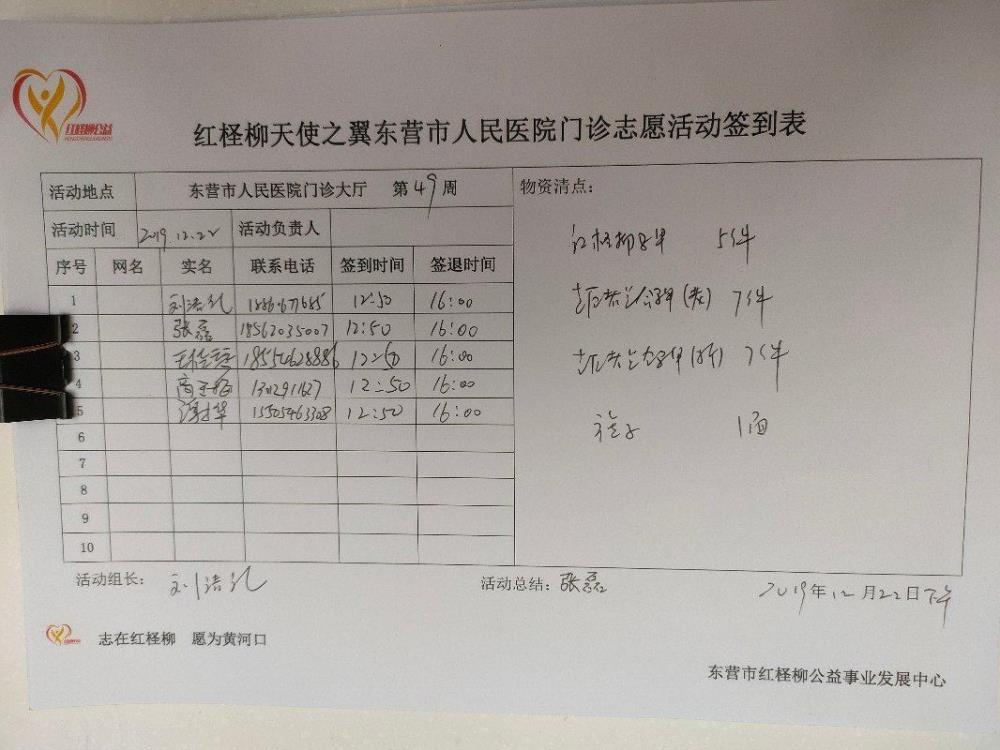 红柽柳公益
红柽柳天使之翼东营市人民医院门诊志愿活动签到表
活动地点 东营市人民医院门诊大厅 第49周
活动时间 2019.12.22 活动负责人
序号 网名 实名 联系电话 签到时间 签退时间
1 12:50 16:00
2 张磊 18562035007 12:50 16:00
3 18554628886 12:50 16:00
4 12:50 16:00
5 15505463308 12:50 16:00
6
7
8
9
10
物资清点:
红柽柳马甲 5件
7件
7件
旗子 1面
活动组长: 刘洁
活动总结: 张磊
2019年12月22日下午
志在红柽柳 愿为黄河口
东营市红柽柳公益事业发展中心